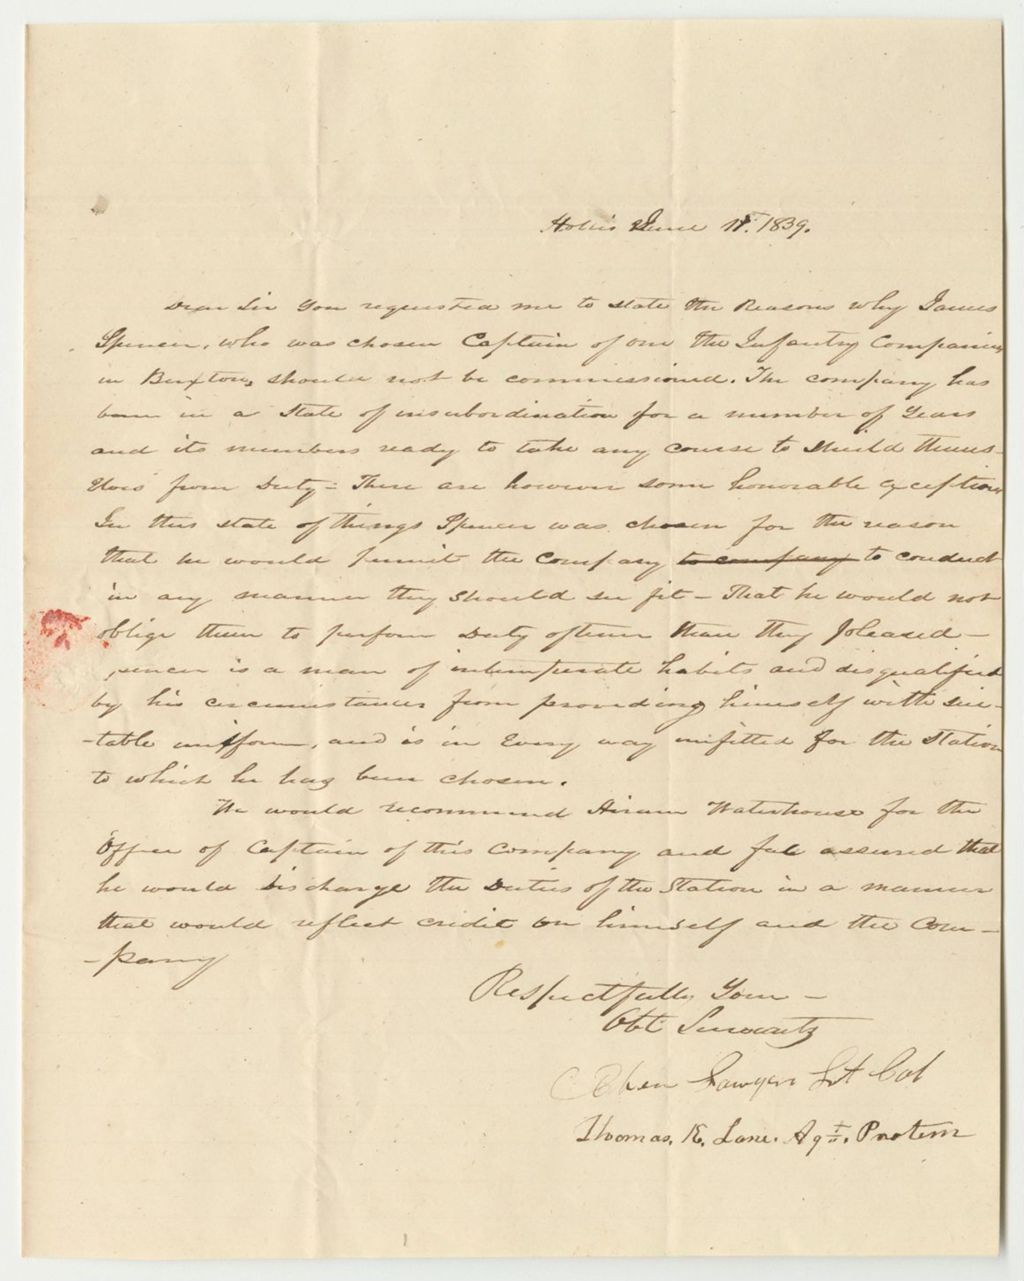 Hollis June 1st. 1839.
Dear Sir You requested me to state the Reasons why James
Spencer, who was chosen Captain of one the Infantry Companies
in Buxton, should not be commissioned. The company has
been in a state of insubordination for a number of Years
and its members ready to take any course to Shield thems-
elves from Duty - There are however some honorable exceptions
In this state of things Spencer was chosen for the reason
that he would permit the company to company to conduct
in any manner they should see fit - That he would not
oblige them to perform Duty oftener than they pleased -
Spencer is a man of intemperate habits and disqualified
by his circumstances from providing himself with sui-
-table uniform, and is in Every way unfitted for the Station
to which he has been chosen.
We would recommend Hiram Waterhouse for the
Office of Captain of this Company and feel assured that
he would Discharge the Duties of the Station in a manner
that would reflect credit on himself and the Com-
-pany
Respectfully Your -
Obt Servants
Eben Sawyer Lt Col
Thomas. K. Lane. Agt. Protem